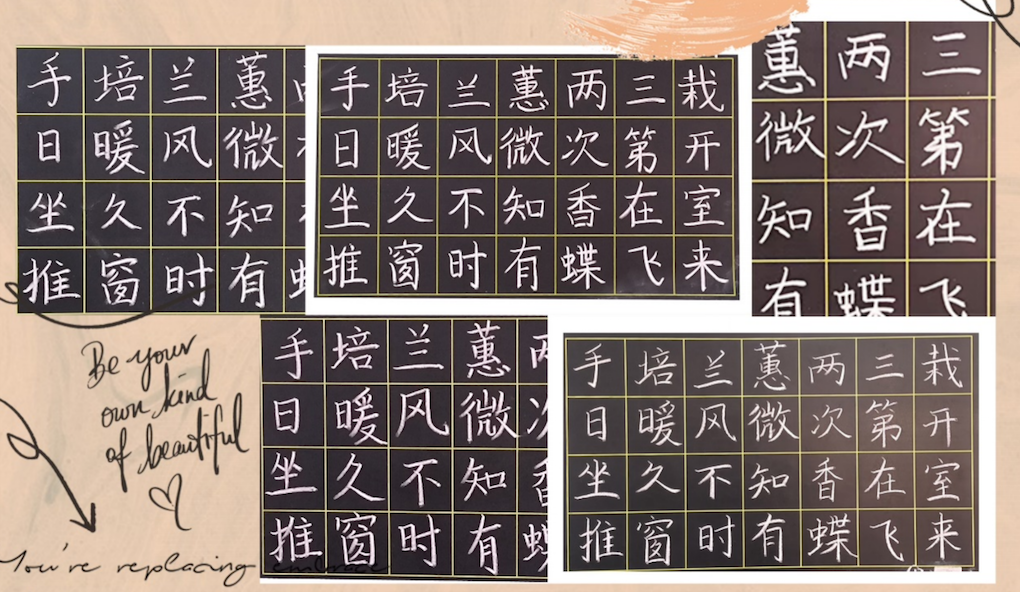 手培兰蕙
日暖风微
坐久不知
推窗时有
手培兰蕙两三栽
日暖风微次第开
坐久不知香在室
推窗时有蝶飞来
蕙两三
微次第
知香在
有蝶飞
Be your
own kind
of beautiful
You're replacing embrace
手培兰蕙两
日暖风微次
坐久不知香
推窗时有蝶
手培兰蕙两三栽
日暖风微次第开
坐久不知香在室
推窗时有蝶飞来